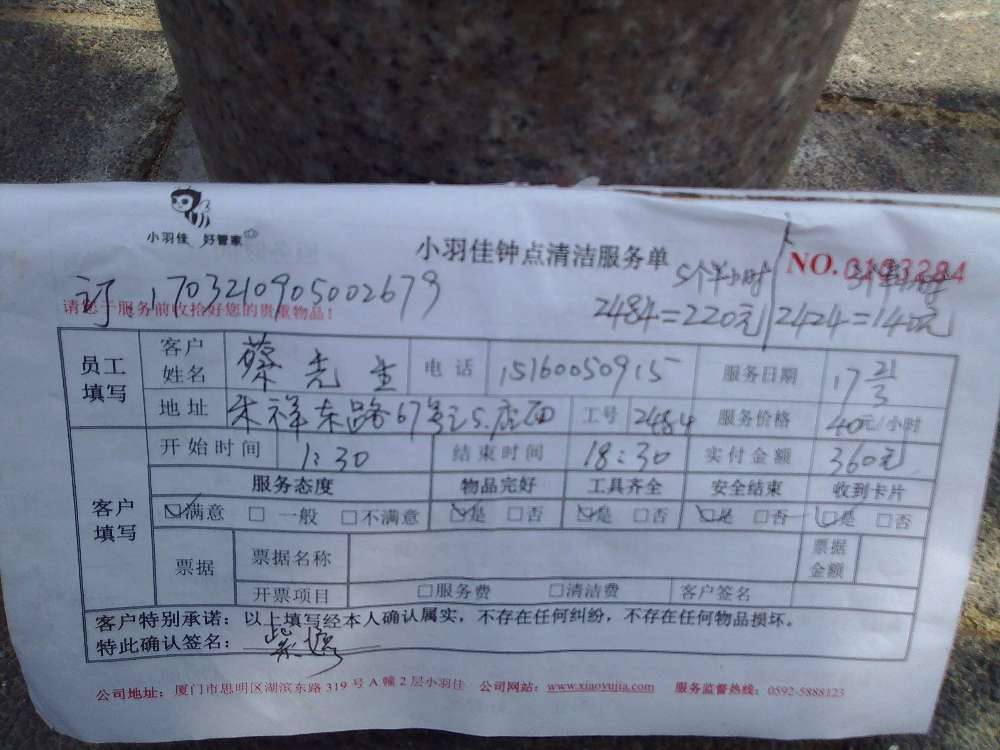 小羽佳 好管家
小羽佳钟点清洁服务单
NO.
订 1703210905002679
5个半小时
请您于服务前收拾好您的贵重物品!
2484=220元 2424=140元
员工填写 客户姓名 蔡先生 电话 15160050915 服务日期 17 21/3
地址 祥东路67号之5.店面 工号 2484 服务价格 40元/小时
客户填写 开始时间 1:30 结束时间 18:30 实付金额 360元
服务态度 物品完好 工具齐全 安全结束 收到卡片
☑满意 □一般 □不满意 ☑是 □否 ☑是 □否 ☑是 □否 ☑是 □否
票据 票据名称 票据金额
开票项目 □服务费 □清洁费 客户签名
客户特别承诺:以上填写经本人确认属实,不存在任何纠纷,不存在任何物品损坏。
特此确认签名:
公司地址:厦门市思明区湖滨东路319号A幢2层小羽佳 公司网站:www.xiaoyujia.com 服务监督热线:0592-5888123